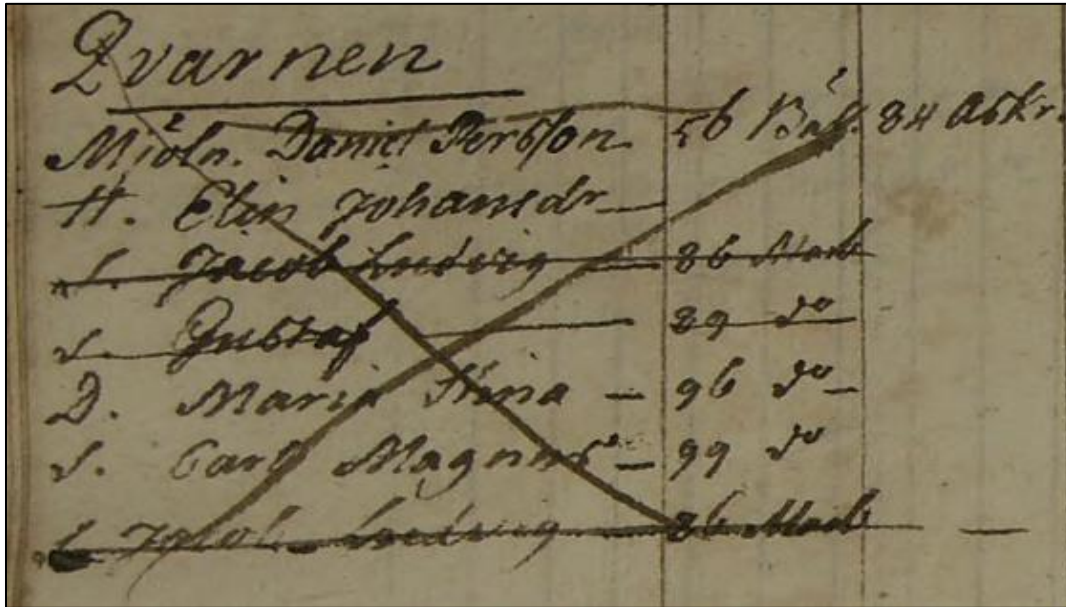 Qvarnen
Miöln. Daniel Persson 56 Bäl. 84 Askr.
H. Elin Johansdr
S. Jacob Ludvig 86 Mark
S. Gustaf 89 do
D. Maria Stina 96 do
S. Carl Magnus 99 do
S. Jacob Ludvig 86 Mark